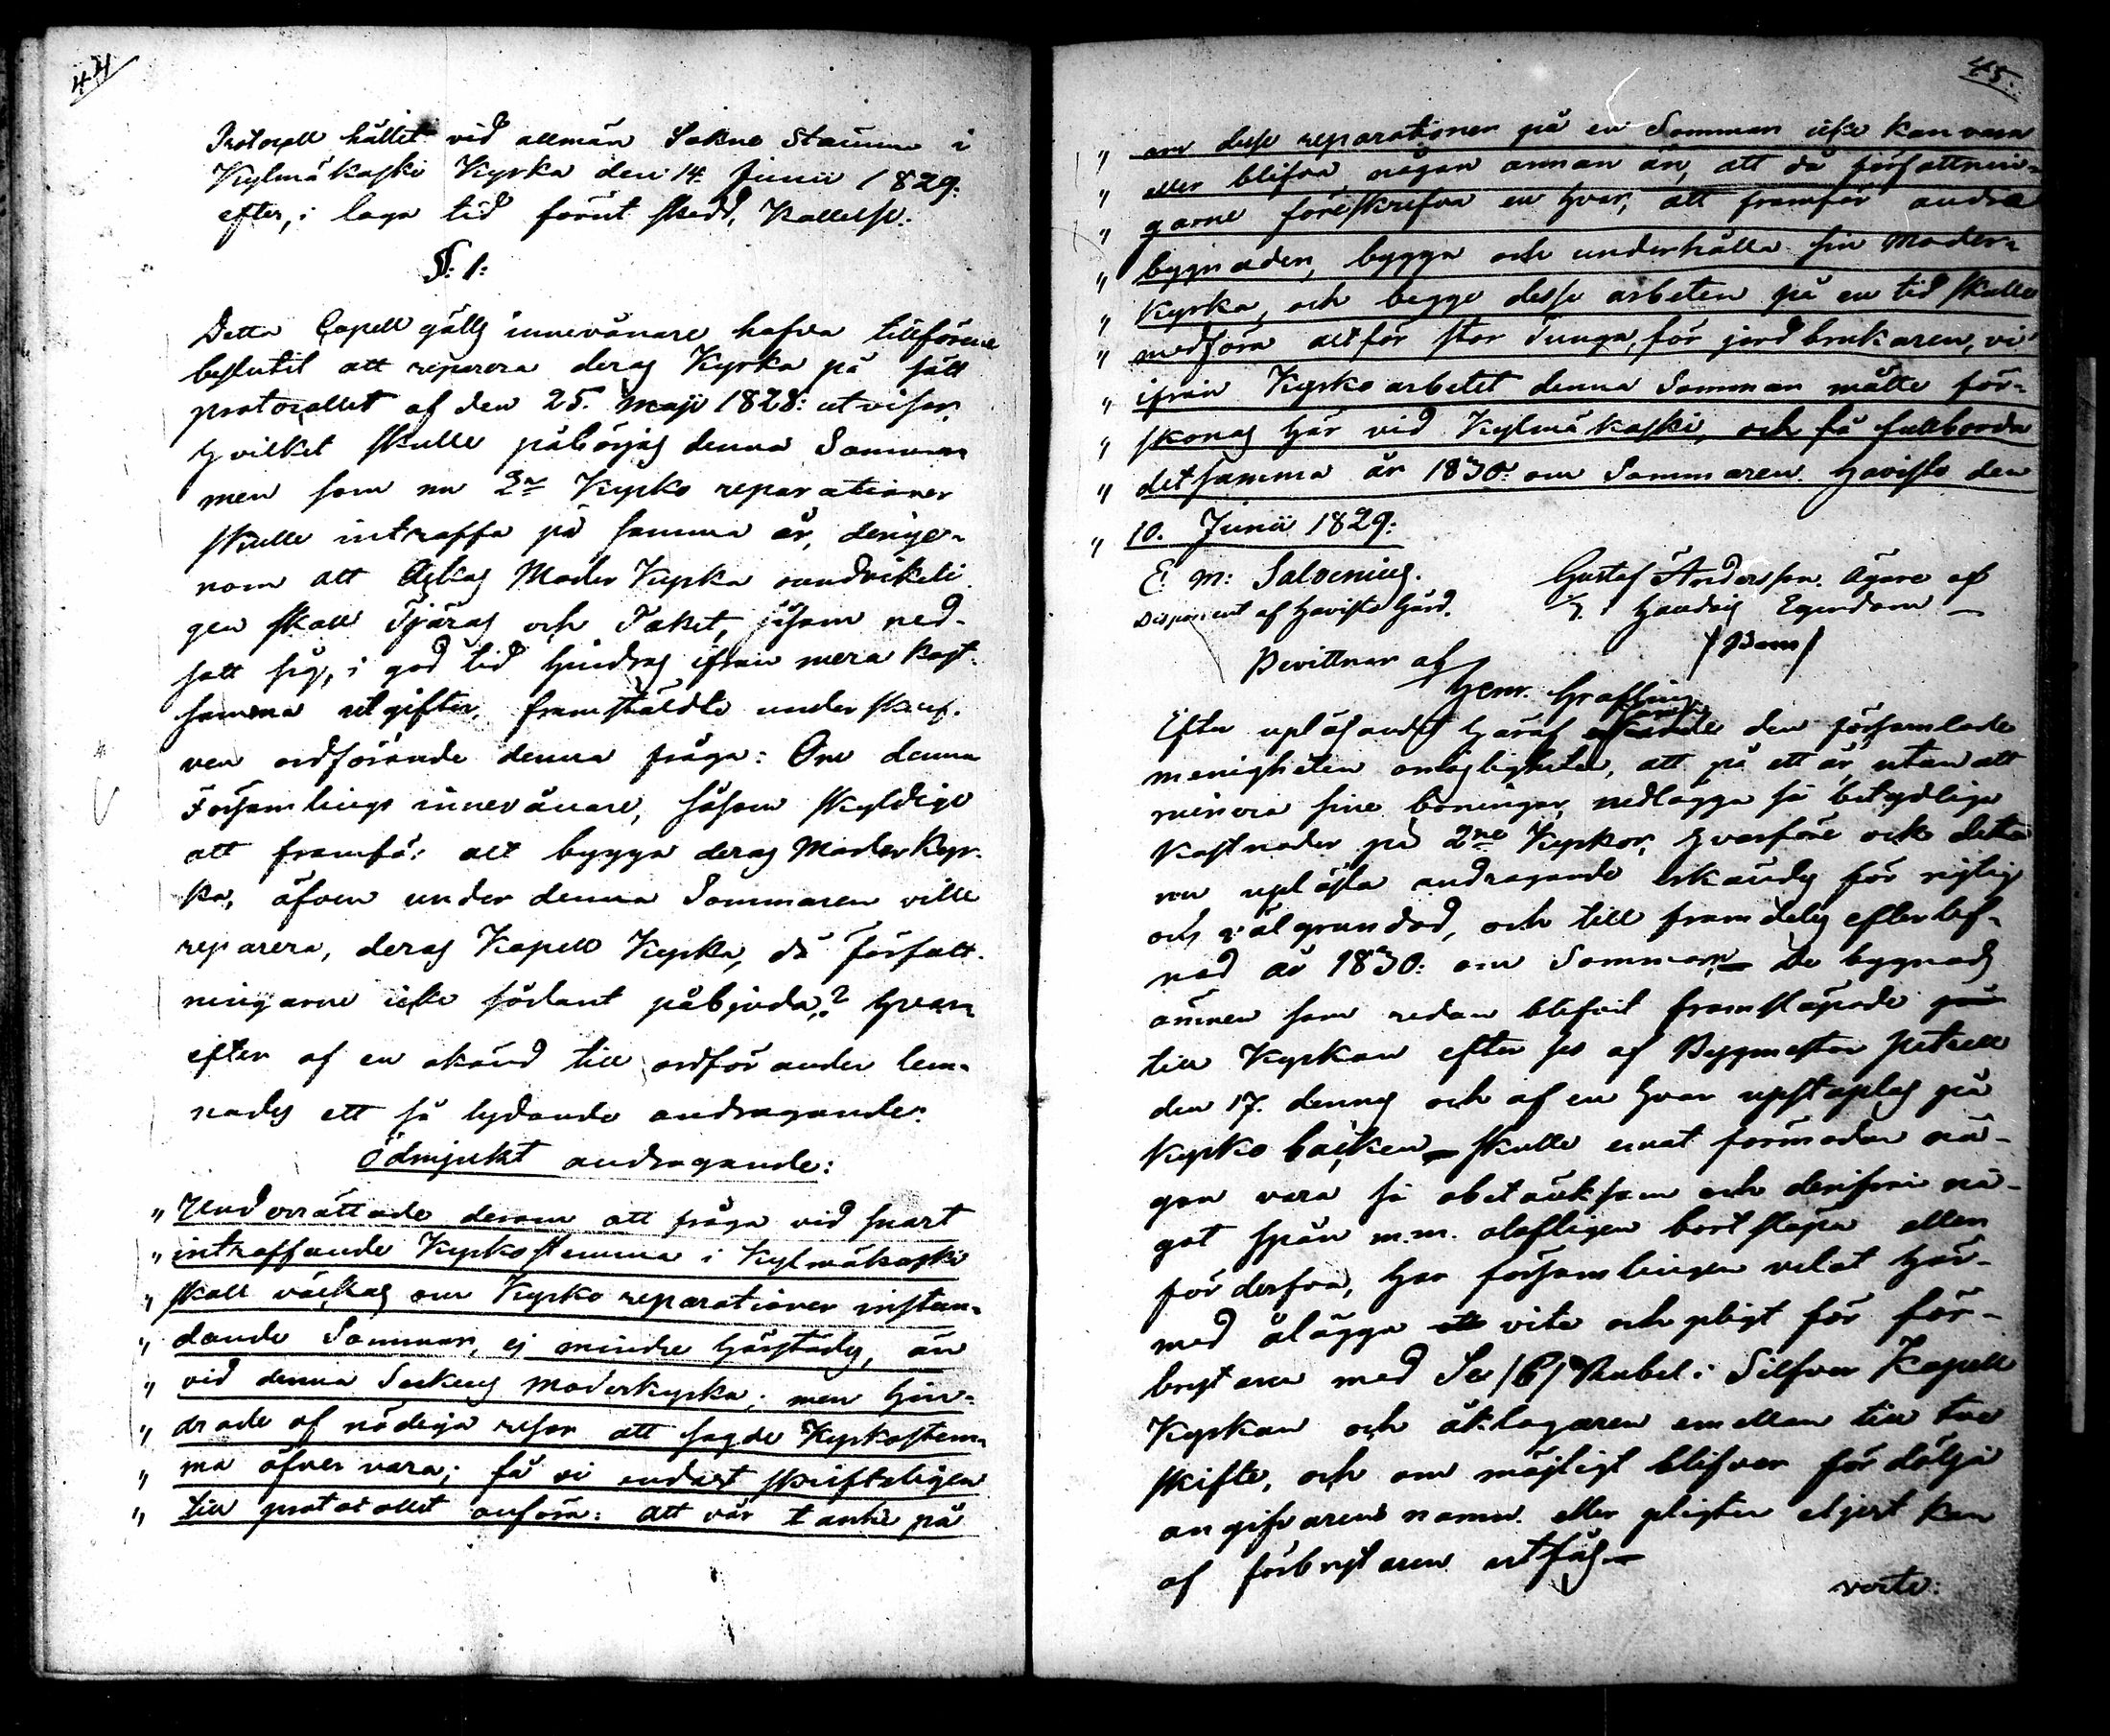 44
Protocoll hållet vid allmän Sokne Stämma i
Kylmäkoski Kyrka den 14. Junii 1829.
efter, i laga tid förut skedd, Kallelse.
§: 1:
Detta Capell gälls innevånare hafva tillförene
beslutit att reparera deras Kyrka på sätt
protocollet af den 25. Maji 1828: utvisar,
hvilket skulle påbörjas denna Sommar
men som nu 2ne Kyrko reparationer
skulle intraffa på samma år, derige-
nom att Ackas Moder Kyrka oundvikeli
gen skall Tjäras och Taket, såsom ned-
satt sig, i god tid hindras ifrån mera kost-
samma utgifter, framstäldte under skrif-
ven ordförande denna fråga: Om denna
Församlings innevånare, såsom skyldige
att framför alt bygga deras Moder Kyr-
ka, äfven under denna Sommaren ville
reparera, deras Kapell Kyrka, då författ-
ningarne icke sådant påbjuda? hvar-
efter af en okänd till ordföranden lem-
nades ett så lydande andragande:
Ödmjukt andragande:
" Underrättade derom att fråga vid snart
" intraffande Kyrkostemma i Kylmäkoski
" skall väckas om Kyrko reparationer instun-
" dande Sommar, ej mindre härstädes, än
" vid denna Sockens Moderkyrka; men hin-
" drade af nödiga resor att sagde Kyrkostem-
" ma öfver vara; få vi endast skrifteligen
" till protocollet anföra: att vår tanke på
45.
" om desse reparationer på en Sommar icke kan vara
" eller blifva någon annan än, att då författnin-
" garne föreskrifva en hvar, att framför andra
" bygnader, bygga och underhålla sin Moder-
" Kyrka, och begge desse arbeten på en tid skulle
" medföra altför stor Tunga, för jordbrukaren, vi
" ifrån Kyrko arbetet denna Sommar måtte för-
" skonas här vid Kylmäkoski, och få fullborda
" detsamma år 1830: om Sommaren. Haviste den
" 10. Junii 1829:
E. M: Salvenius.
Disponent af Haviste Gård.
Gustaf Andersson. Ägare af
Egendom
Bevittnar af
Henr. Grafling
Efter upläsandet häraf den församlade
menigheten omöjligheten, att på ett år, utan att
ruinera sine boningar, nedlägga så betydliga
kostnader på 2ne Kyrkor, hvarföre ock detta
nu upläste andragande erkändes för rigtig
och välgrundad, och till framdeles efterlef-
nad år 1830: om Sommarn — De bygnads
ämnen som redan blifvit framsläpade
till Kyrkan efter af Byggmästar
den 17. dennes och af en hvar upstaplas på
Kyrko backen — skulle emot förmodan nå-
gon vara så obetänksam och derifrån nå-
got spån m.m. olofligen bortsläpa eller
förderfva, har församlingen velat här-
med ålägga vite och pligt för för-
brytaren med Sex /6/ Rubel i Silfver Kapell
Kyrkan och åklagaren emellan till tve
skifte, och om möjligt blifver fördölja
angifvarens namn. eller pligten eljest kan
af förbrytaren utfås —
verte: